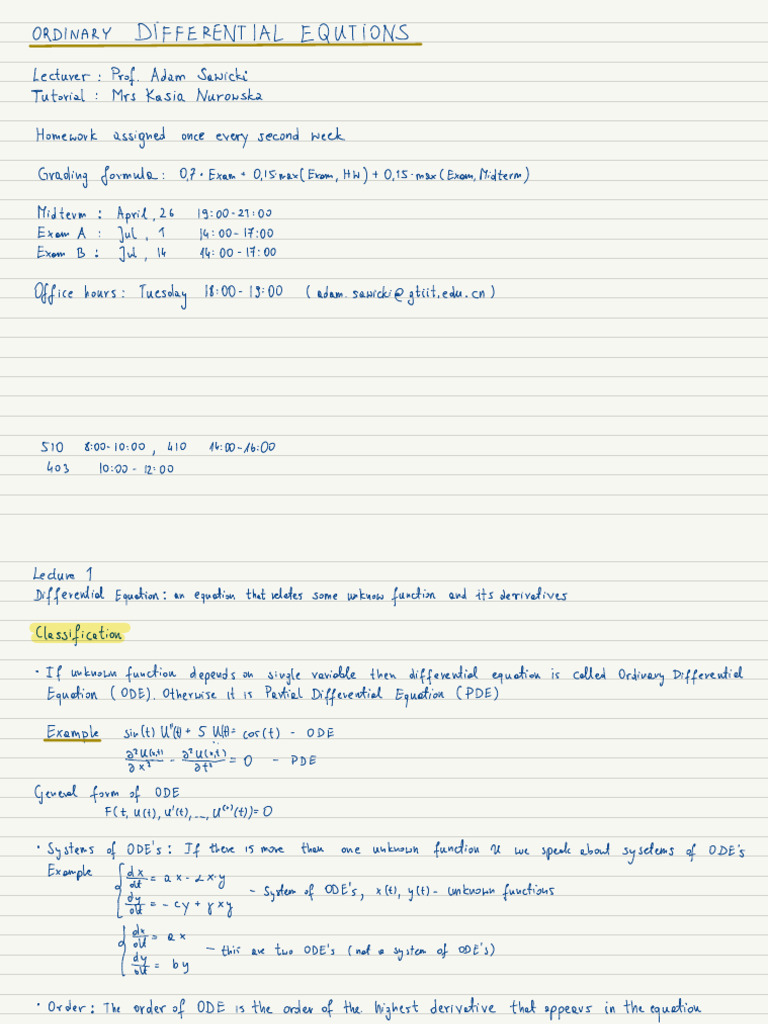 ORDINARY DIFFERENTIAL EQUTIONS
Lecturer : Prof. Adam Sawicki
Tutorial : Mrs Kasia Nurowska
Homework assigned once every second week
Grading formula: 0,7 · Exam + 0,15 max(Exam, HW) + 0,15 · max(Exam, Midterm)
Midterm : April, 26 19:00-21:00
Exam A : Jul, 1 14:00-17:00
Exam B : Jul, 14 14:00-17:00
Office hours: Tuesday 18:00-19:00 (adam.sawicki@gtiit.edu.cn)
510 8:00-10:00, 410 14:00-16:00
403 10:00-12:00
Lecture 1
Differential Equation: an equation that relates some unknow function and its derivatives
Classification
· If unknown function depends on single variable then differential equation is called Ordinary Differential
Equation (ODE). Otherwise it is Partial Differential Equation (PDE)
Example sin(t) U''(t) + 5 U(t) = cos(t) - ODE
∂²U(x,t)/∂x² - ∂²U(x,t)/∂t² = 0 - PDE
General form of ODE
F(t, U(t), U'(t), ..., U⁽ⁿ⁾(t)) = 0
· Systems of ODE's: If there is more than one unknown function u we speak about sysetems of ODE's
Example { dx/dt = ax - αx·y
dy/dt = -cy + γxy - System of ODE's, x(t), y(t) - unknown functions
{ dx/dt = ax
dy/dt = by - this are two ODE's (not a system of ODE's)
· Order: The order of ODE is the order of the highest derivative that appears in the equation